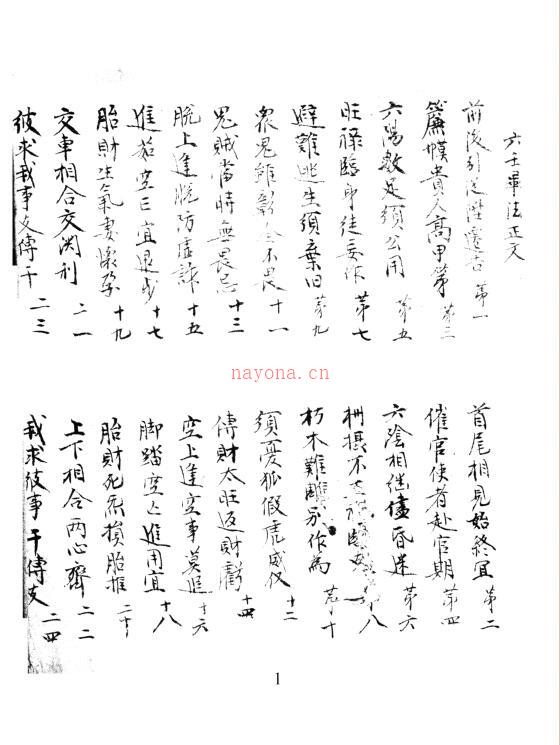 六壬畢法正文
前後引從陞遷吉 第一
首尾相見始終宜 第二
簾幙貴人高甲第 第三
催官使者赴官期 第四
六陽數足須公用 第五
六陰相继儘昏迷 第六
旺禄臨身徒妄作 第七
第八
避難逃生須棄旧 第九
朽木難雕别作為 第十
衆鬼雖彰全不畏 十一
須憂狐假虎威仪 十二
鬼賊當時無畏忌 十三
傳財太旺返財虧 十四
脱上逢脱防虚詐 十五
空上逢空事莫追 十六
進茹空亡宜退步 十七
脚踏空亡進用宜 十八
胎財生氣妻懷孕 十九
胎財死炁損胎推 二十
交車相合交関利 二一
上下相合两心齊 二二
彼求我事支傳干 二三
我求彼事干傳支 二四
nayona.cn
1